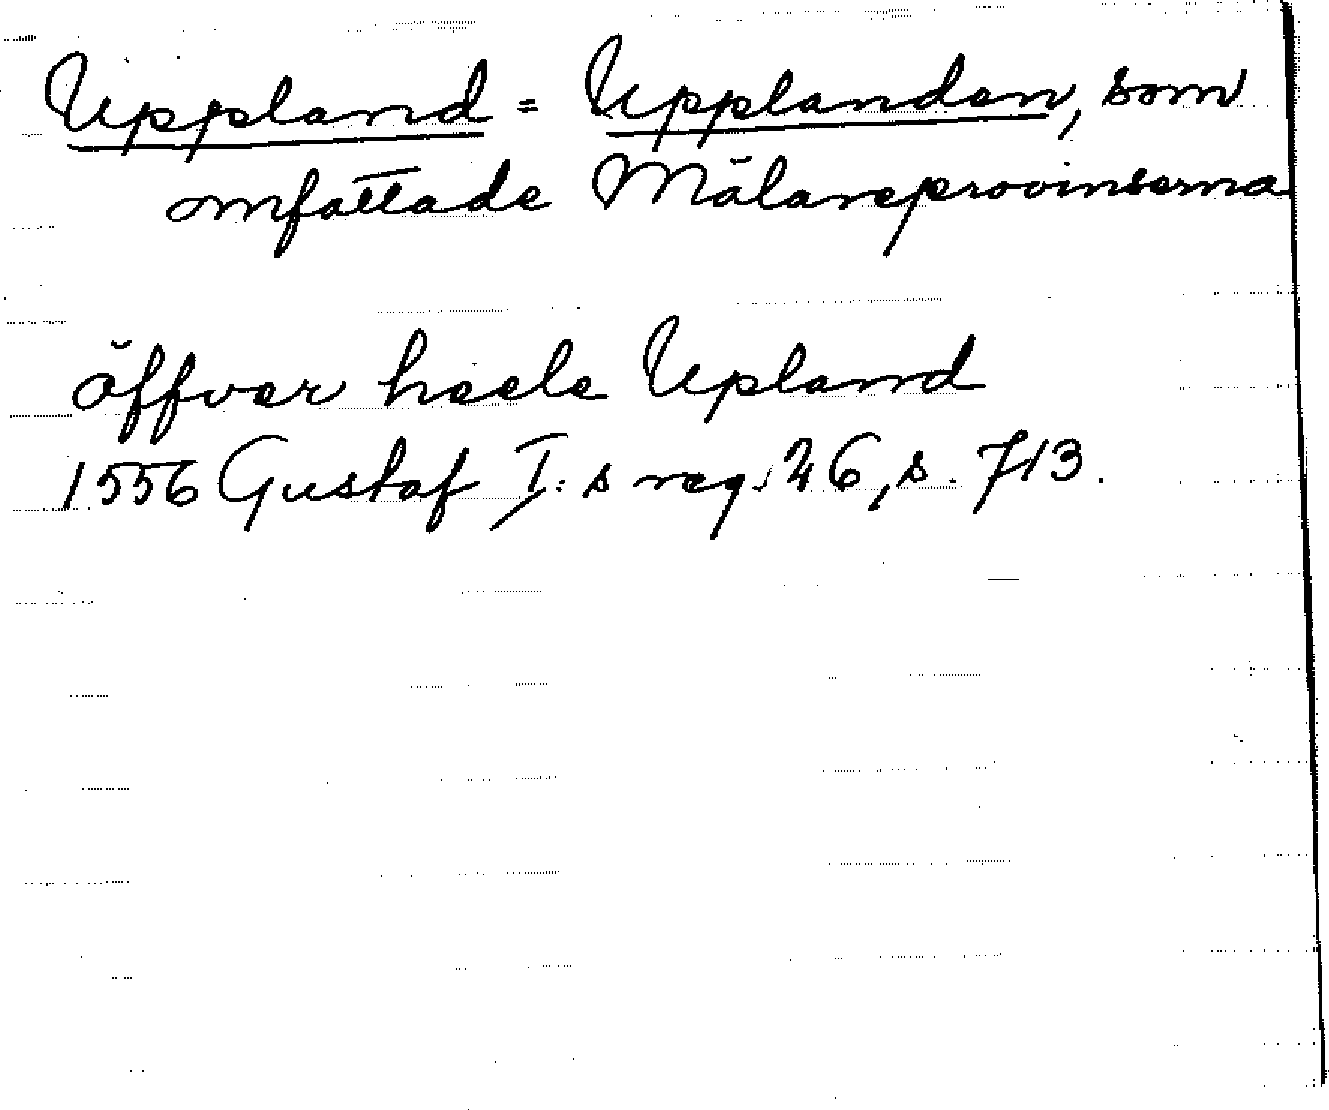 Uppland = Upplanden, som
omfattade Mälareprovinserna
öffver heele Upland
1556 Gustaf I:s reg. 26, s. 713.